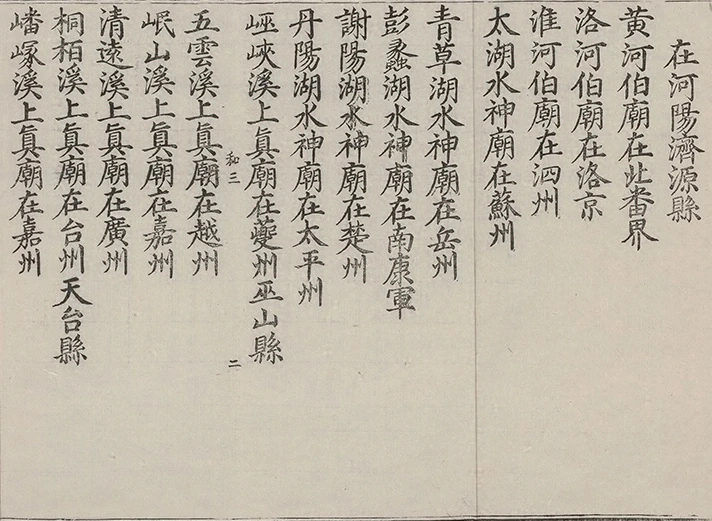 在河陽濟源縣
黄河伯廟在北番界
洛河伯廟在洛京
淮河伯廟在泗州
太湖水神廟在蘇州
青草湖水神廟在岳州
彭蠡湖水神廟在南康軍
謝陽湖水神廟在楚州
丹陽湖水神廟在太平州
巫峽溪上真廟在夔州巫山縣
和三
二
五雲溪上真廟在越州
岷山溪上真廟在嘉州
清遠溪上真廟在廣州
桐栢溪上真廟在台州天台縣
嶓冢溪上真廟在嘉州